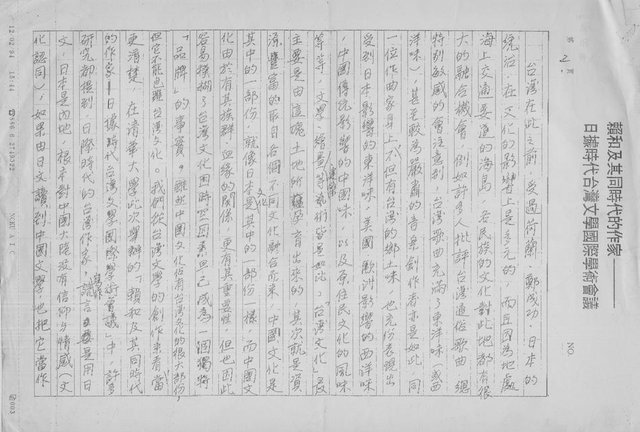 賴和及其同時代的作家——
日據時代台灣文學國際學術會議
第 2 頁
NO.
台灣在此之前，受過荷蘭、鄭成功、日本的
統治，在文化的影響上是多元的，而且因為地處
海上交通要道的海島，各民族的文化對此地都有很
大的融合機會，例如許多人批評台灣通俗歌曲，總
特別敏感的會注意到，台灣歌曲充滿了東洋味（或西
洋味），甚至較為嚴肅的音樂創作者亦是如此，同
一位作曲家身上，不但有台灣的鄉土味，也充份表現出
受到日本影響的東洋味，美國、歐洲影響的西洋味
，中國傳統影響的中國味，以及原住民文化的風味
等等，文學、繪畫、建築等藝術皆是如此。「台灣文化」
主要是由這塊土地所孕育出來的，其次就是資
源豐富的取自各個不同文化融合而來，中國文化是
其中的一部份，就像日本文化與其中的一部份一樣，而中國文
化由於有其族群、血緣的關係，更有其重要性，但也因此
容易模糊了台灣文化因時空因素自己成為一個獨特
「品牌」的事實。雖然中國文化佔有台灣文化的很大部份，
但它不能包辦台灣文化。我們從台灣文學的創作來看當
更清楚，在清華大學此次舉辦的「賴和及其同時代
的作家—日據時代台灣文學國際學術會議」中，許多
研究都提到，日據時代的台灣作家，語言是用日
文，日本是內地，根本對中國大陸沒有信仰與情感（文
化認同），如果由日文讀到中國文學，也把它當作
12 02 '94 15:44
NCHU A I C
003